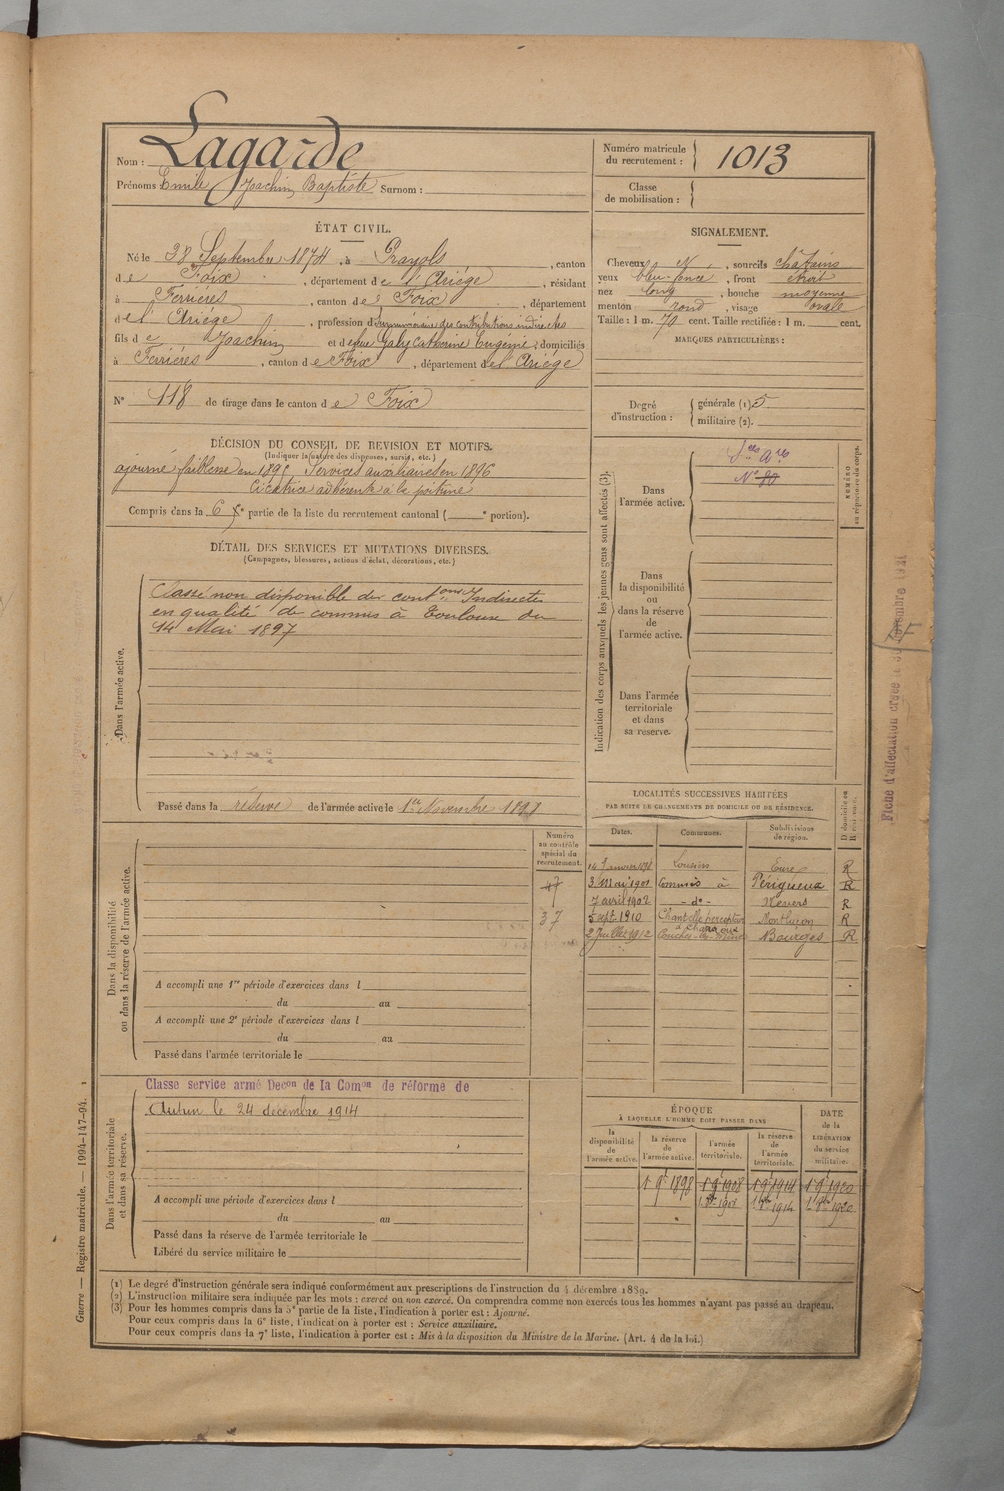 Nom : Lagarde
Prénoms Emile Joachim Baptiste Surnom :
Numéro matricule du recrutement : 1013
Classe de mobilisation :
ÉTAT CIVIL.
Né le 28 Septembre 1874, à Prayols, canton
de Foix, département de l'Ariège, résidant
à Ferrières, canton de Foix, département
de l'Ariège, profession de Surnuméraire des contributions indirectes
fils de Joachim et de feue Galy Catherine Eugénie, domiciliés
à Ferrières, canton de Foix, département de l'Ariège
N° 118 de tirage dans le canton de Foix
SIGNALEMENT.
Cheveux N, sourcils châtains
yeux bleu foncé, front étroit
nez long, bouche moyenne
menton rond, visage ovale
Taille : 1 m. 79 cent. Taille rectifiée : 1 m. cent.
MARQUES PARTICULIÈRES :
Degré d'instruction : générale (1) 5
militaire (2).
DÉCISION DU CONSEIL DE REVISION ET MOTIFS.
(Indiquer la nature des dispenses, sursis, etc.)
ajourné faiblesse en 1895 Services auxiliaires en 1896
Cicatrice adhérente à la poitrine
Compris dans la 6e partie de la liste du recrutement cantonal ( e portion).
DÉTAIL DES SERVICES ET MUTATIONS DIVERSES.
(Campagnes, blessures, actions d'éclat, décorations, etc.)
Dans l'armée active.
Classé non disponible des contons Indirectes
en qualité de commis à Toulouse du
14 Mai 1897
Passé dans la réserve de l'armée active le 1er Novembre 1898
Indication des corps auxquels les jeunes gens sont affectés (3).
Dans l'armée active.
Sces Ares
N° 80
NUMÉRO au répertoire du corps.
Dans la disponibilité ou dans la réserve de l'armée active.
Dans l'armée territoriale et dans sa réserve.
Fiche d'affectation
Numéro au contrôle spécial du recrutement.
47
37
Dans la disponibilité ou dans la réserve de l'armée active.
A accompli une 1re période d'exercices dans l
du au
A accompli une 2e période d'exercices dans l
du au
Passé dans l'armée territoriale le
LOCALITÉS SUCCESSIVES HABITÉES
PAR SUITE DE CHANGEMENTS DE DOMICILE OU DE RÉSIDENCE.
Dates. Communes. Subdivisions de région. D domicile ou R résidence.
14 Janvier 1898 Louviers Eure R
3 Mai 1901 Commis à Périgueux R
7 avril 1902 - do - Nevers R
5 sept 1910 Chantelle percepteur Montluçon R
2 Juillet 1912 Couches-les-Mines Bourges R
Dans l'armée territoriale et dans sa réserve.
Classe service armé Decon de la Comon de réforme de
Autun le 24 décembre 1914
A accompli une période d'exercices dans l
du au
Passé dans la réserve de l'armée territoriale le
Libéré du service militaire le
ÉPOQUE
À LAQUELLE L'HOMME DOIT PASSER DANS
la disponibilité de l'armée active. la réserve de l'armée active. l'armée territoriale. la réserve de l'armée territoriale. DATE de la LIBÉRATION du service militaire.
1 9e 1898 1 9e 1908 1 9e 1914 1 9e 1920
(1) Le degré d'instruction générale sera indiqué conformément aux prescriptions de l'instruction du 4 décembre 1889.
(2) L'instruction militaire sera indiquée par les mots : exercé ou non exercé. On comprendra comme non exercés tous les hommes n'ayant pas passé au drapeau.
(3) Pour les hommes compris dans la 5e partie de la liste, l'indication à porter est : Ajourné.
Pour ceux compris dans la 6e liste, l'indication à porter est : Service auxiliaire.
Pour ceux compris dans la 7e liste, l'indication à porter est : Mis à la disposition du Ministre de la Marine. (Art. 4 de la loi.)
Guerre — Registre matricule. — 1994-147-94.